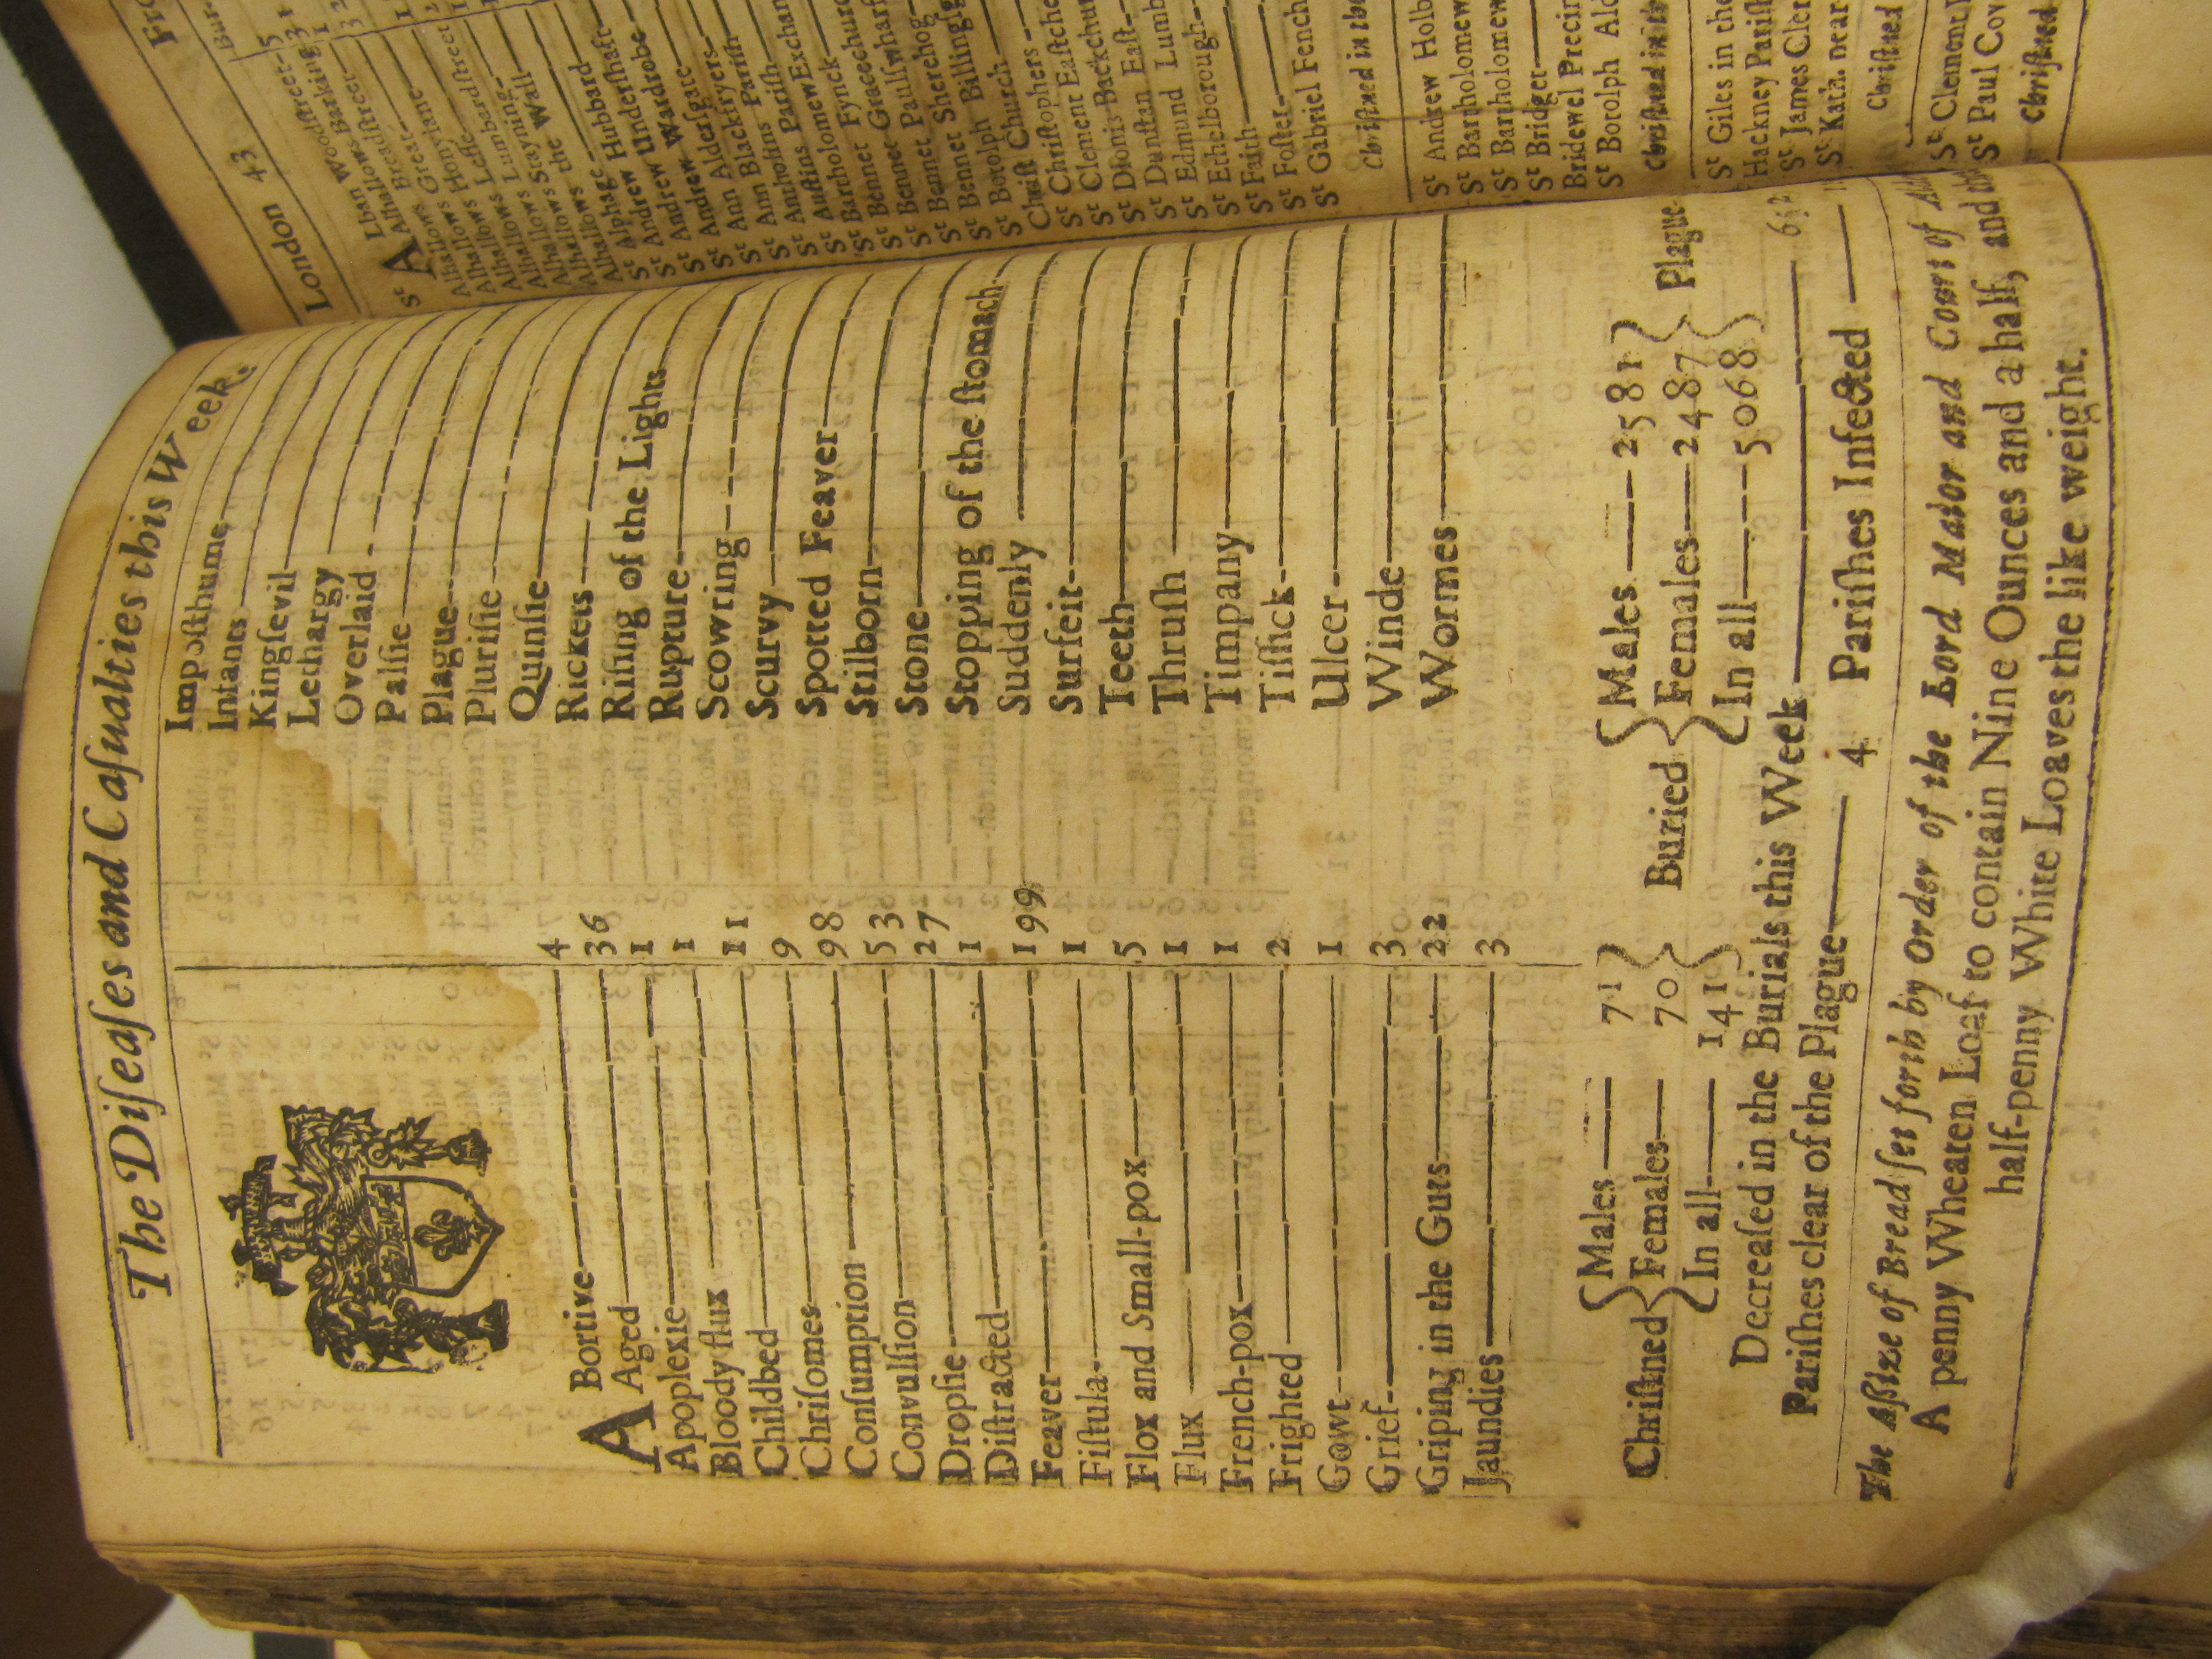 The Diſeaſes and Caſualties this Week.
ABortive 4
Aged 36
Apoplexie 1
Bloody flux 1
Childbed 11
Chriſomes 9
Conſumption 98
Convulſion 53
Dropſie 27
Diſtracted 1
Feaver 199
Fiſtula 1
Flox and Small-pox 5
Flux 1
French-pox 1
Frighted 2
Gowt 1
Grief 3
Griping in the Guts 22
Jaundies 3
Impoſthume
Intants
Kingſevil
Lethargy
Overlaid
Palſie
Plague
Pluriſie
Quinſie
Rickets
Riſing of the Lights
Rupture
Scowring
Scurvy
Spotted Feaver
Stilborn
Stone
Stopping of the ſtomach
Suddenly
Surfeit
Teeth
Thruſh
Timpany
Tiſſick
Ulcer
Winde
Wormes
Chriſtned { Males 71 Females 70 In all 141 } Buried { Males 2581 Females 2487 In all 5068 } Plague
Decreaſed in the Burials this Week
Pariſhes clear of the Plague 4 Pariſhes Infected
The Aſsize of Bread ſet forth by Order of the Lord Maior and Court of
A penny Wheaten Loaf to contain Nine Ounces and a half, and
half-penny White Loaves the like weight.
London 43
Fro
Bur.
St ALban Woodſtreet 5
Alhallows Barking 3
Alhallows Breadſtreet 1
Alhallows Great
Alhallows Honylane
Alhallows Leſſe
Alhallows Lumbardſtreet
Alhallows Stayning
Alhallows the Wall
Alphage
St Andrew Hubbard
St Andrew Underſhaft
St Andrew Wardrobe
St Ann Alderſgate
St Ann Blackfryers
St Antholins Pariſh
St Auſtins Pariſh
St Bartholomew Exchan
St Bennet Fynck
St Bennet Gracechurc
St Bennet Paulſwharf
St Bennet Sherehog
St Botolph Billingſg
Chriſt Church
St Chriſtophers
St Clement Eaſtche
St Dionis Backchur
St Dunſtan Eaſt
St Edmund Lumb
St Ethelborough
St Faith
St Foſter
St Gabriel Fench
Chriſtned in the
St Andrew Holb
St Bartholomew
St Bartholomew
St Bridget
Bridewel Precin
St Botolph Ald
Chriſtned in th
St Giles in the
Hackney Pariſh
St James Cler
St Kath. near
Chriſtned
St Clement
St Paul Cov
Chriſtned